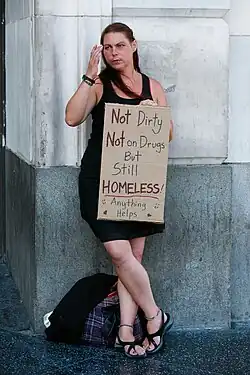 Not Dirty
Not on Drugs
But
Still
HOMELESS!
Anything
Helps